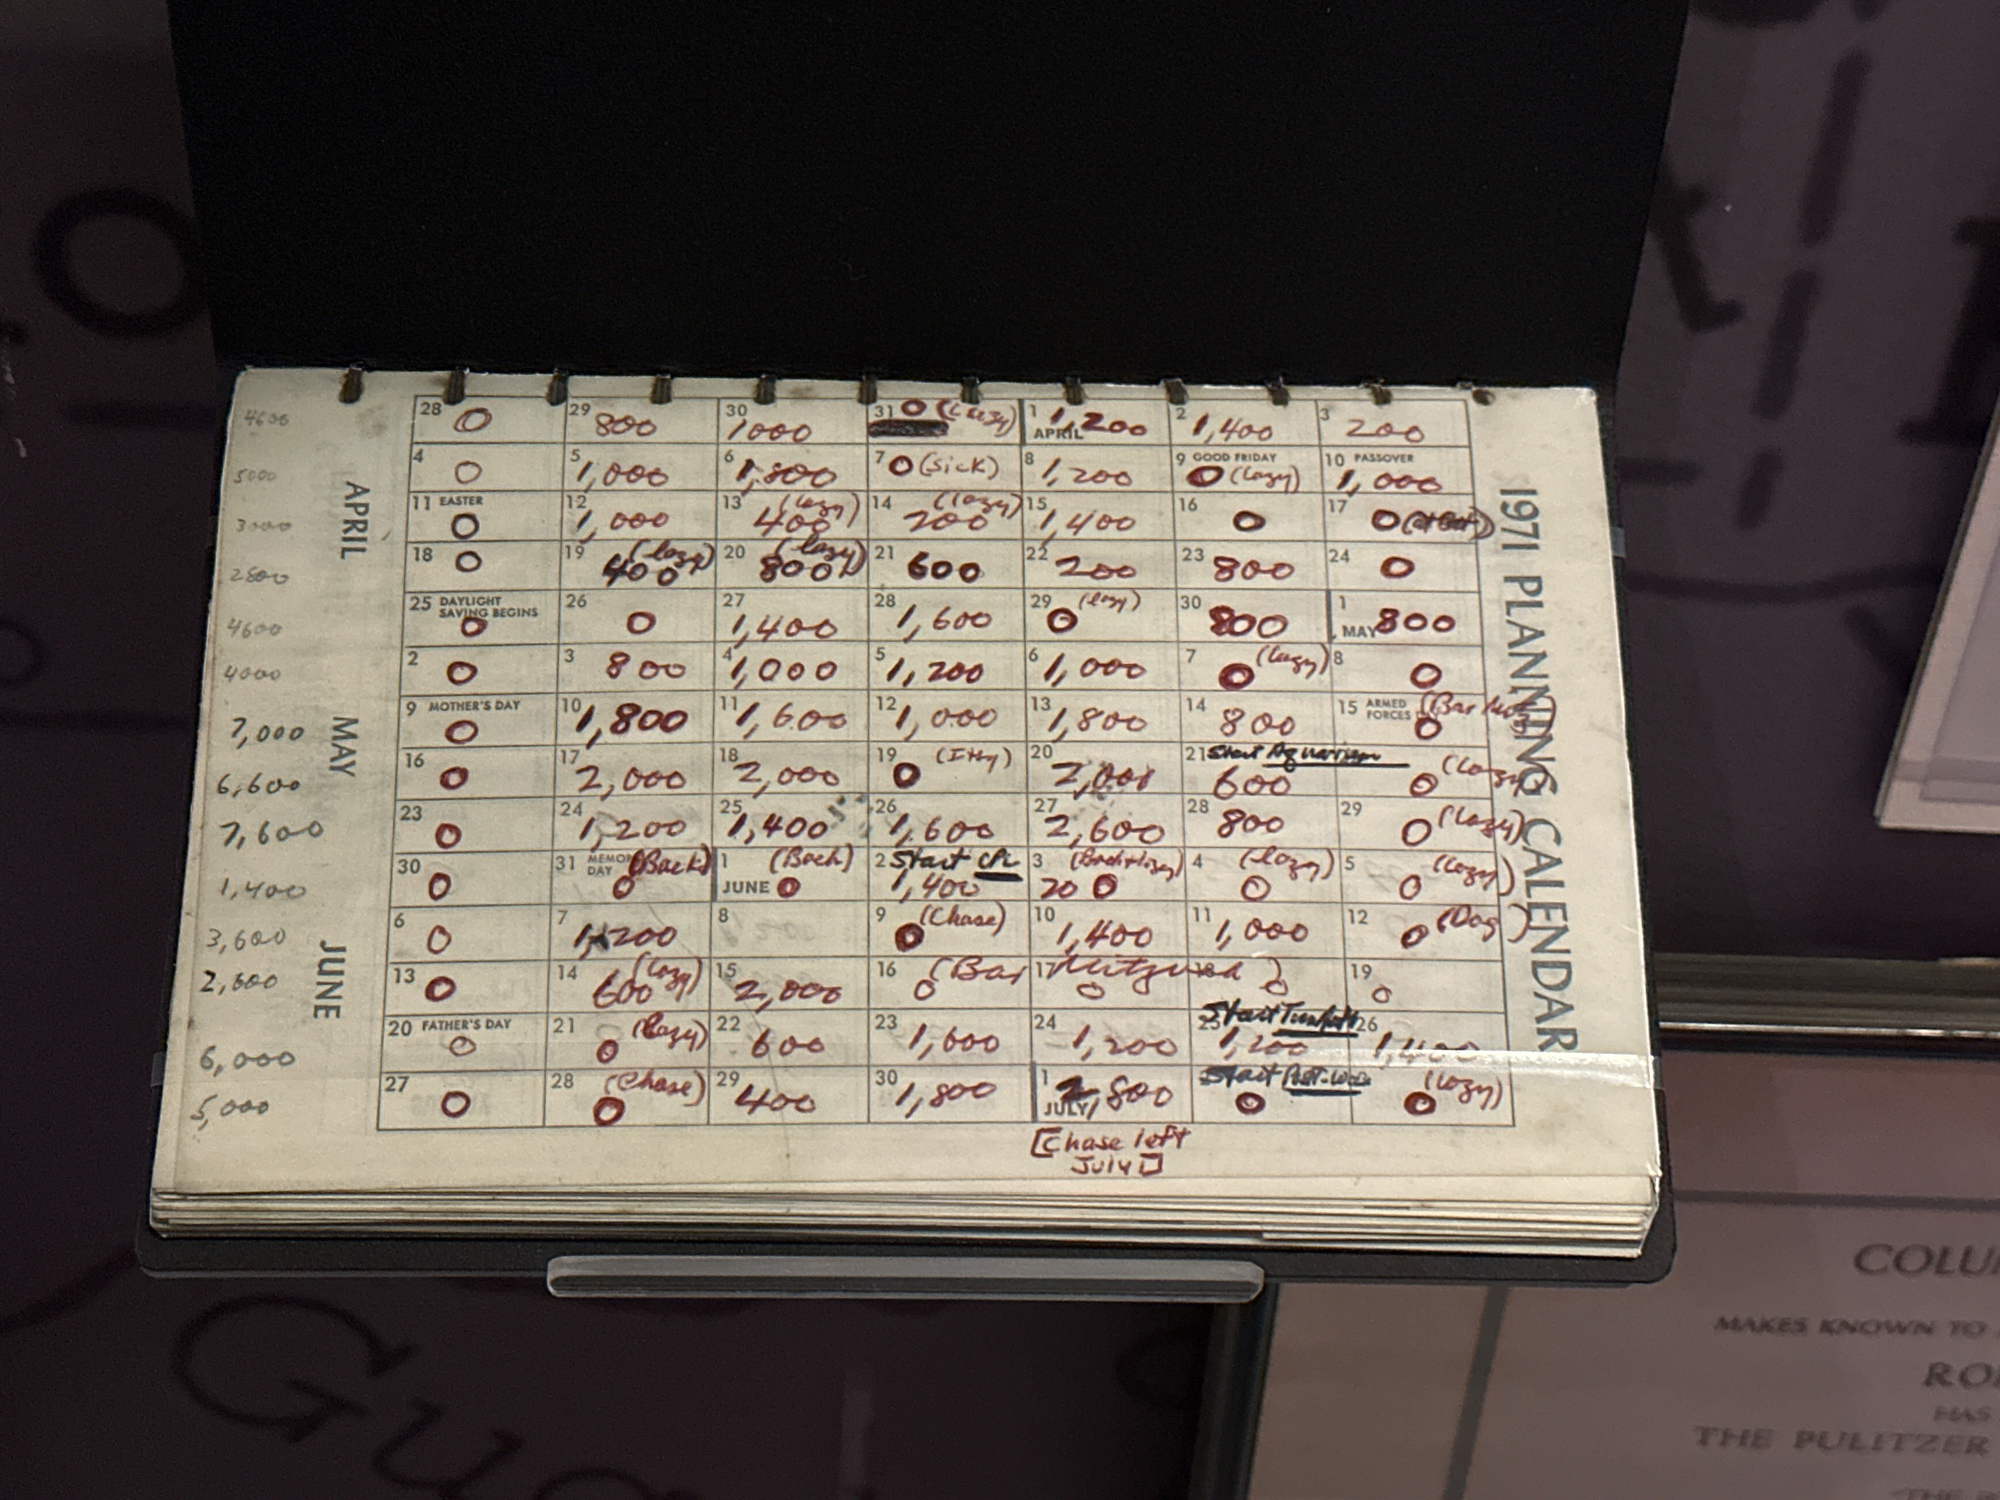 4600 28 0 29 800 30 1000 31 0 (Lazy) 1 APRIL 1,200 2 1,400 3 200
5000 4 0 5 1,000 6 1,800 7 0 (sick) 8 1,200 9 GOOD FRIDAY 0 (lazy) 10 PASSOVER 1,000
3000 11 EASTER 0 12 1,000 13 (lazy) 400 14 (lazy) 200 15 1,400 16 0 17 0
2800 18 0 19 (lazy) 400 20 (lazy) 800 21 600 22 200 23 800 24 0
4600 25 DAYLIGHT SAVING BEGINS 0 26 0 27 1,400 28 1,600 29 (lazy) 0 30 800 1 MAY 800
4000 2 0 3 800 4 1,000 5 1,200 6 1,000 7 0 (lazy) 8 0
7,000 9 MOTHER'S DAY 0 10 1,800 11 1,600 12 1,000 13 1,800 14 800 15 ARMED FORCES 0
6,600 16 0 17 2,000 18 2,000 19 0 20 2,000 21 Start Aquarium 600 0 (lazy)
7,600 23 0 24 1,200 25 1,400 26 1,600 27 2,600 28 800 29 0 (lazy)
1,400 30 0 31 MEMORIAL DAY (Back) 0 1 JUNE (Back) 0 2 Start 1,400 3 (Back+lazy) 20 0 4 (lazy) 0 5 (lazy) 0
3,600 6 0 7 1,200 8 9 (Chase) 0 10 1,400 11 1,000 12 0 (Dog)
2,600 13 0 14 (lazy) 600 15 2,000 16 0 17 0 18 0 19 0 (Bar Mitzvah)
6,000 20 FATHER'S DAY 0 21 (lazy) 0 22 600 23 1,600 24 1,200 25 Start 1,200 26 1,400
5,000 27 0 28 (Chase) 0 29 400 30 1,800 1 JULY 2,800 Start 0 (lazy) 0
[Chase left
July 1]
APRIL
MAY
JUNE
1971 PLANNING CALENDAR
COLU
MAKES KNOWN TO
RO
HAS
THE PULITZER